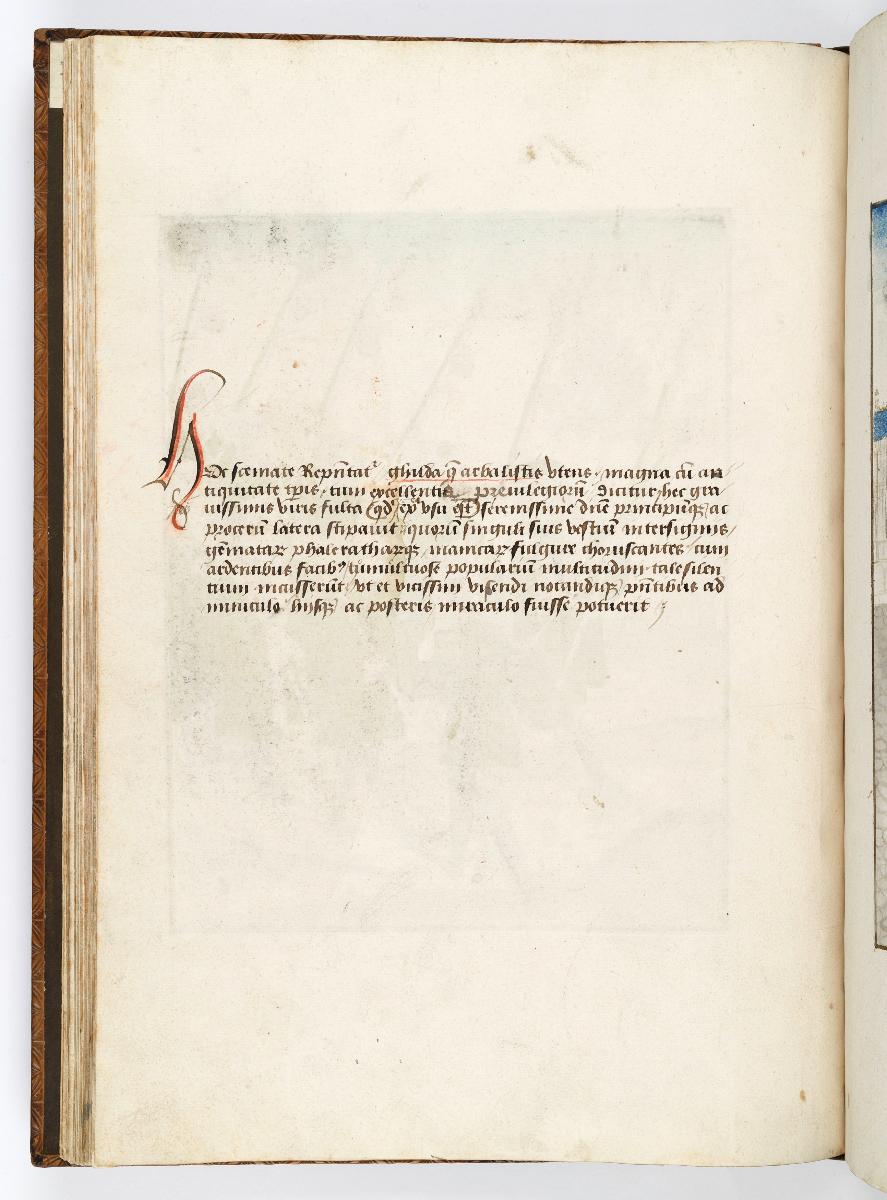 De scemate Rep̄ntat᷒ ghulda q̄ arbalistis vtens, magna cū an
tiquitate tp̄is, tum excellentia preuilegiorū dicitur, hec gra
uissimis viris fulta qd᷒ ex vsu est serenissime dn̄e principūqꝫ ac
procerū latera stipauit, quorū singuli sius vestiū intersignus,
gēmataꝝ phalerathaꝝqꝫ manicaꝝ fulgure choruscantes, cum
ardentibus facib᷒, tumultuose popularium multitudini tale silen
tium incusserūt, vt et vicissim visendi notandiqꝫ pn̄tibus ad
miniculo, hijsqꝫ ac posteris miraculo fuisse potuerit